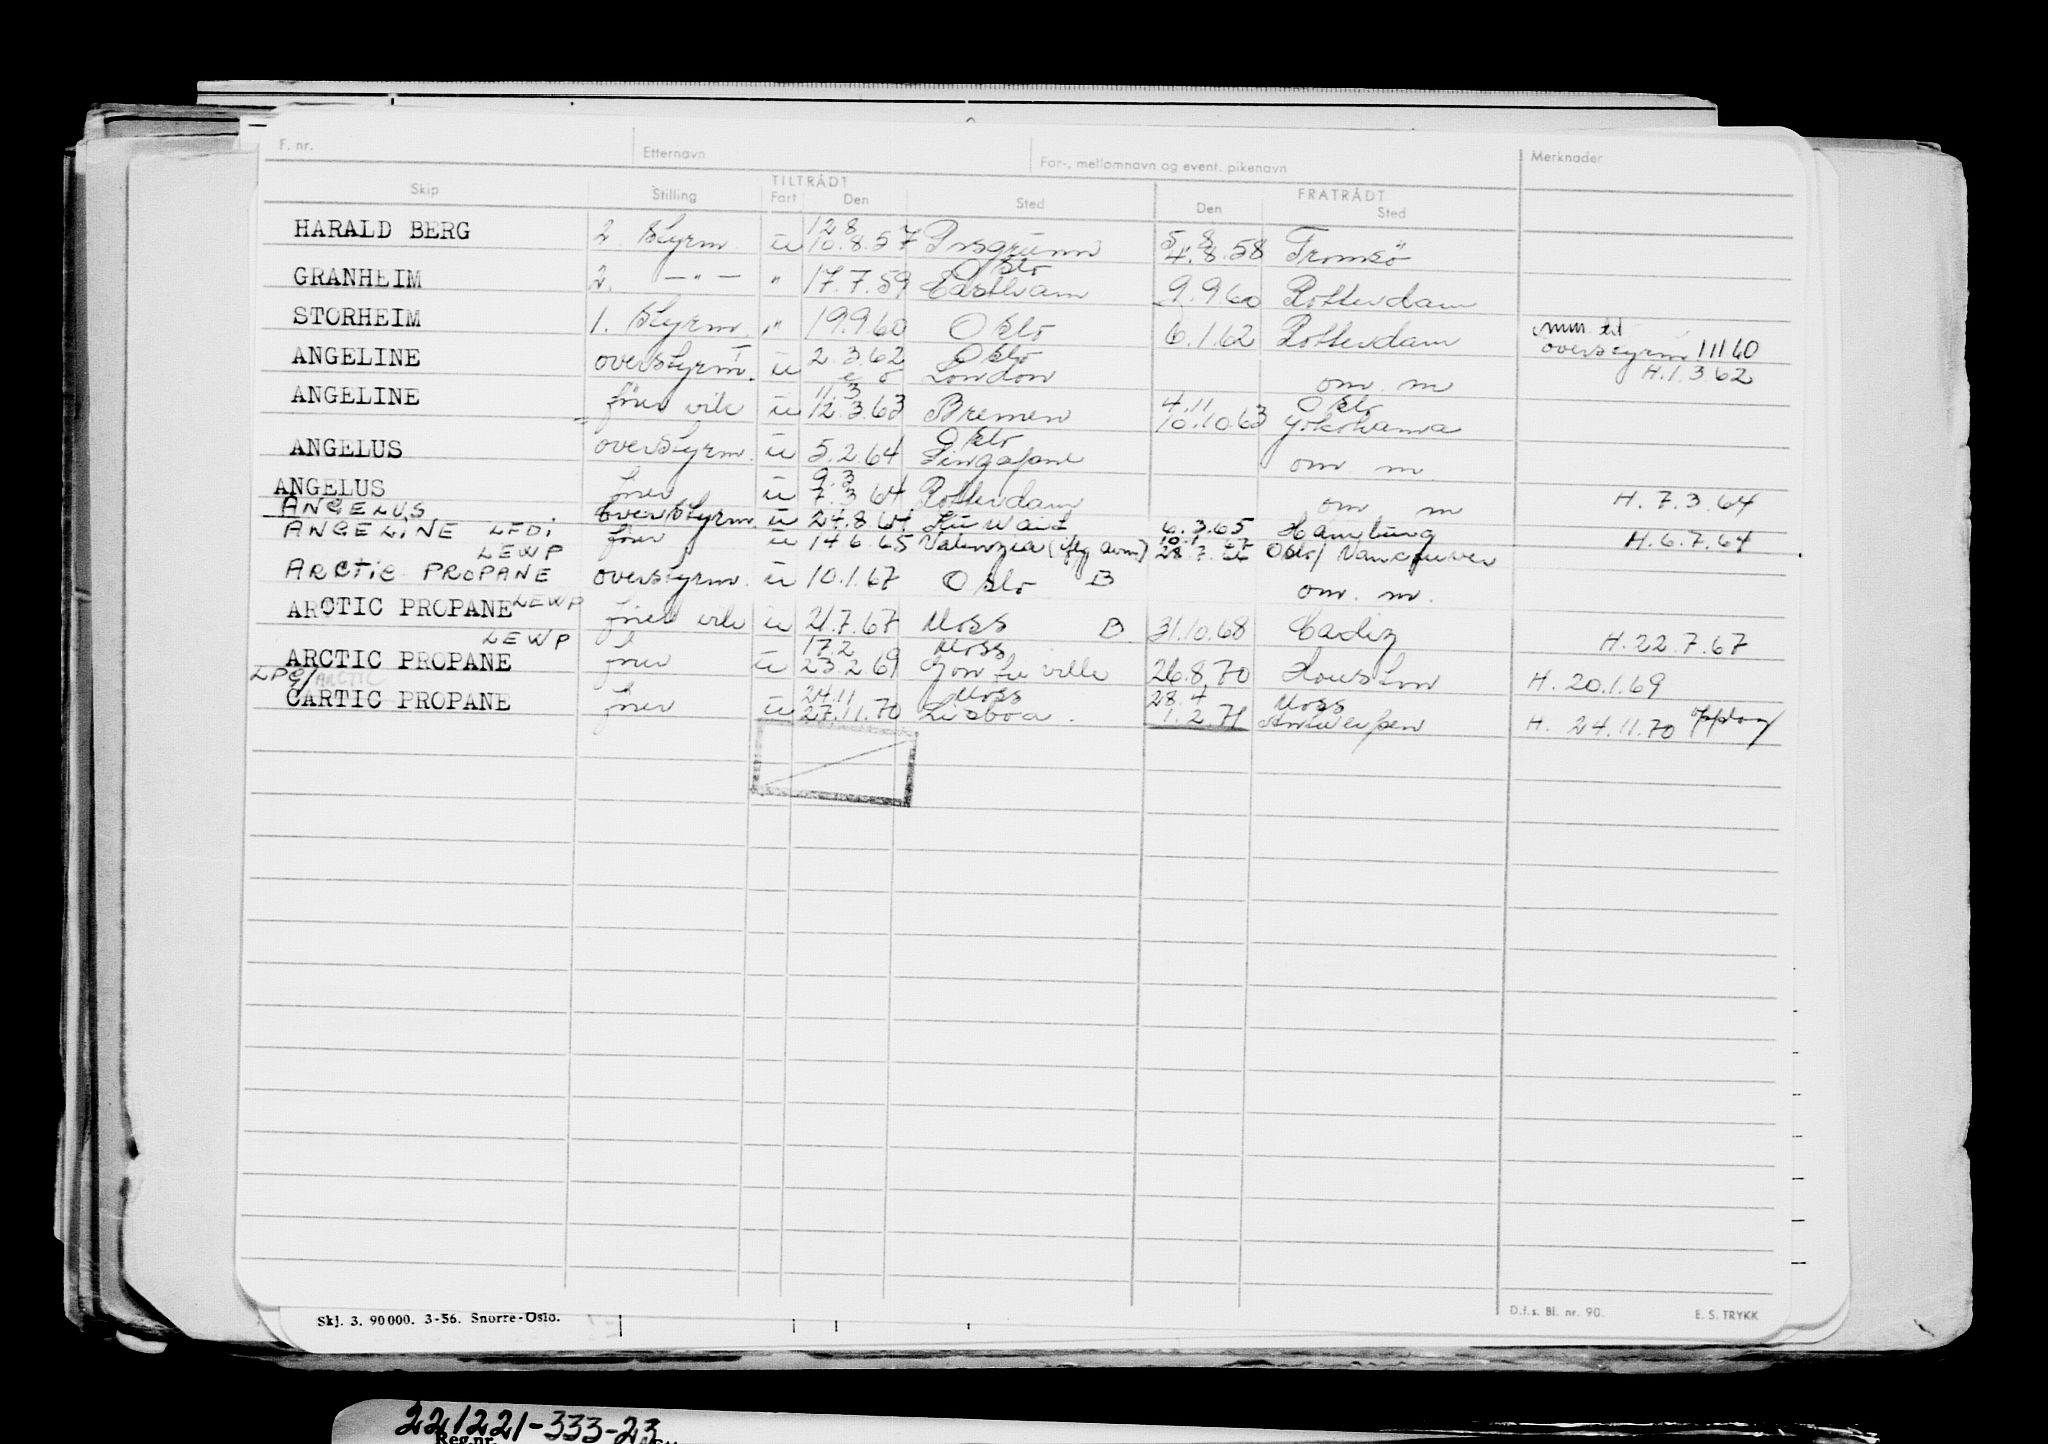 F. nr. Etternavn For-, mellomnavn og event. pikenavn Merknader
Skip Stilling TILTRÅDT Fart Den Sted FRATRÅDT Den Sted
HARALD BERG 2. styrm. u 12 8 10.8.57 Porsgrunn 5 8 4.8.58 Tromsö
GRANHEIM 2. —"— " 17.7.59 Oslo Eastham 9.9.60 Rotterdam
STORHEIM 1. styrm. " 19.9.60 Oslo 6.1.62 Rotterdam overstyrm 1 11 60
ANGELINE overstyrm. u 2.3.62 Oslo London om. m H.1.3.62
ANGELINE förer vik u 11.3 12.3.63 Bremen 4.11 10.10.63 Oslo Yokohama
ANGELUS overstyrm. u 5.2.64 Oslo Singapore om m.
ANGELUS förer u 9.3 7.3.64 Rotterdam om m H. 7.3.64
ANGELUS overstyrm. u 24.8.64 Kuwait 6.3.65 Hamburg
ANGELINE LFDI förer u 14.6.65 Valenzia 10.1.67 28.7.66 Oslo/ Vancouver H.6.7.64
LEWP
ARCTIC PROPANE overstyrm. u 10.1.67 Oslo B om. m.
ARCTIC PROPANE LEWP förer vik u 21.7.67 Moss B 31.10.68 Cadiz H.22.7.67
LEWP
ARCTIC PROPANE förer u 17.2 23.2.69 Moss 26.8.70 Houston H. 20.1.69
LPG/ ARCTIC
CARTIC PROPANE förer u 24.11 27.11.70 Moss Lisboa. 28.4 1.2.71 Moss Antwerpen H. 24.11.70 opplag
Skj. 3. 90000. 3-56. Snorre-Oslo.
D.f.s. Bl. nr. 90. E. S. TRYKK
221221-333-23
Reg.nr.